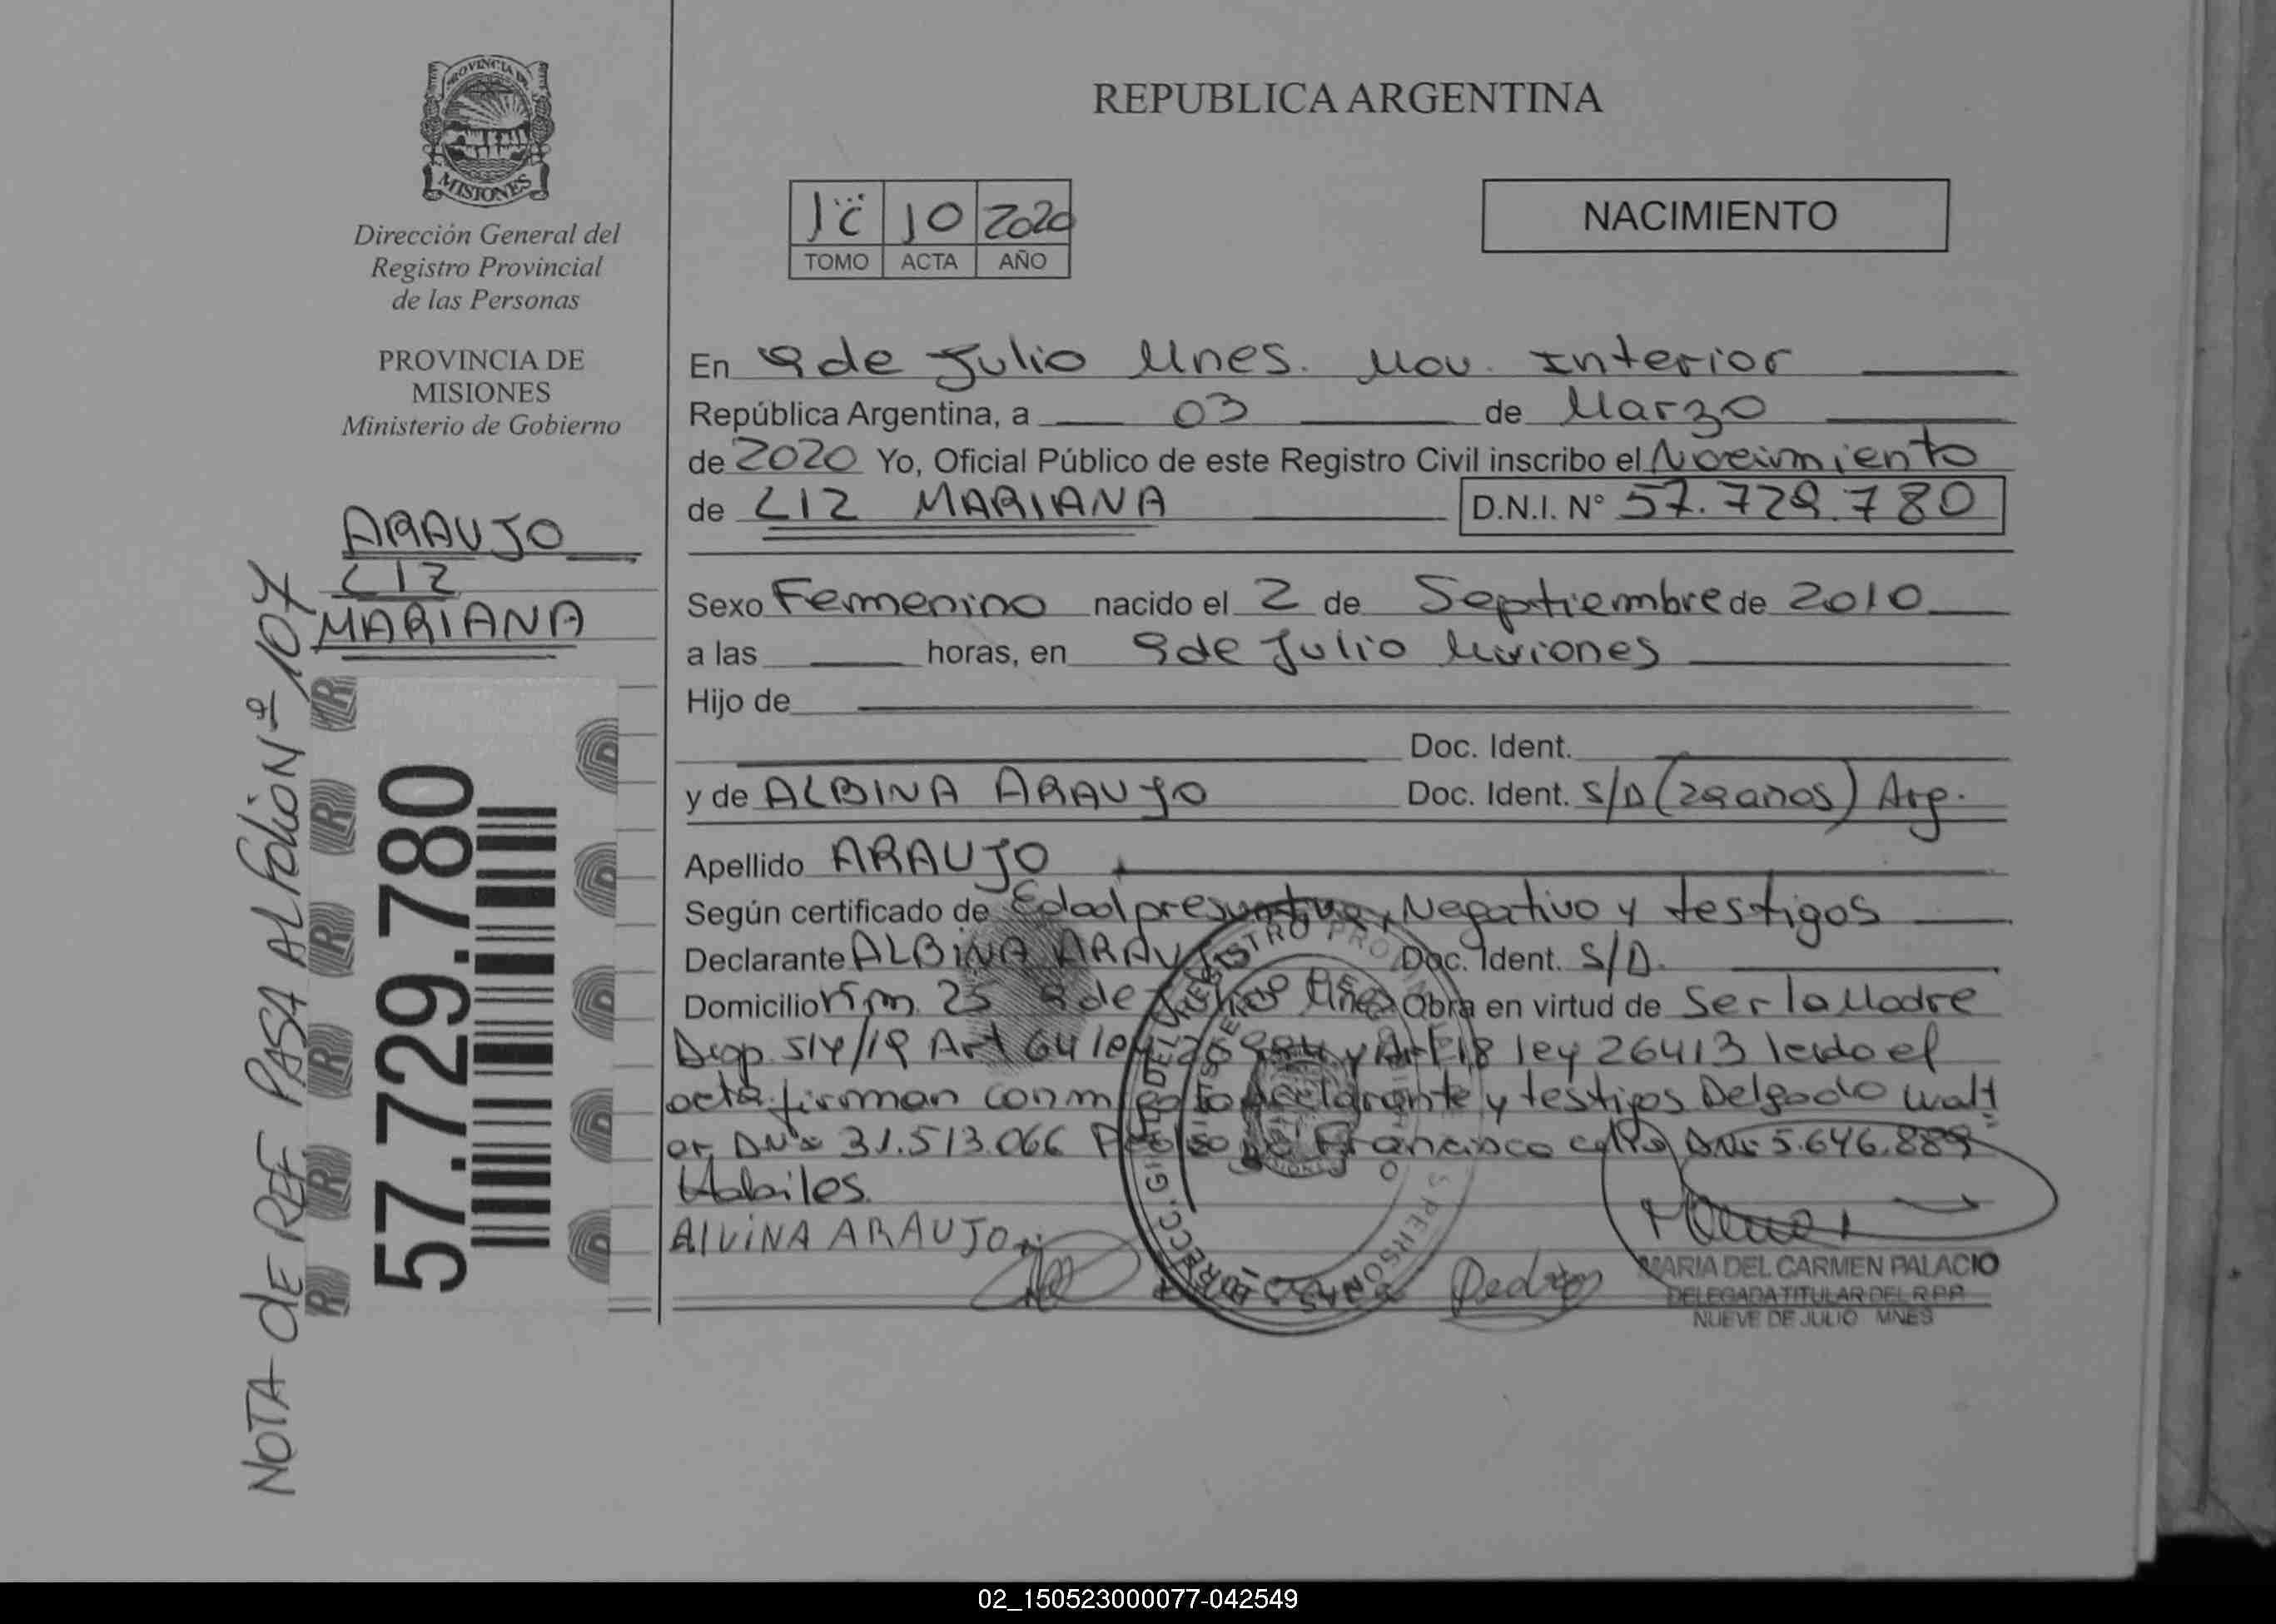 PROVINCIA DE
MISIONES
Dirección General del
Registro Provincial
de las Personas
PROVINCIA DE
MISIONES
Ministerio de Gobierno
ARAUJO
LIZ
MARIANA
NOTA DE REF. PASA AL FOLIO Nº 107
57.729.780
REPUBLICA ARGENTINA
10 2020
TOMO ACTA AÑO
NACIMIENTO
En 9 de Julio Mnes. Mov. Interior
República Argentina, a 03 de Marzo
de 2020 Yo, Oficial Público de este Registro Civil inscribo el Nacimiento
de LIZ MARIANA D.N.I. Nº 57.729.780
Sexo Femenino nacido el 2 de Septiembre de 2010
a las horas, en 9 de Julio Misiones
Hijo de
Doc. Ident.
y de ALBINA ARAUJO Doc. Ident. S/D (29 años) Arg.
Apellido ARAUJO
Según certificado de Edad presuntiva, Negativo y testigos
Declarante ALBINA ARAU Doc. Ident. S/D.
Domicilio Km 25 9 de Julio Mnes Obra en virtud de Ser la Madre
Disp. 514/19 Art 64 ley y Art 18 ley 26413 leido el
acta firman conmigo la declarante y testigos Delgado Walt
er DNI 31.513.066 Francisco DNI 5.646.889
Habiles.
AlViNA ARAUJO
Pedro
MARIA DEL CARMEN PALACIO
DELEGADA TITULAR DEL R.P.P.
NUEVE DE JULIO MNES
02_150523000077-042549